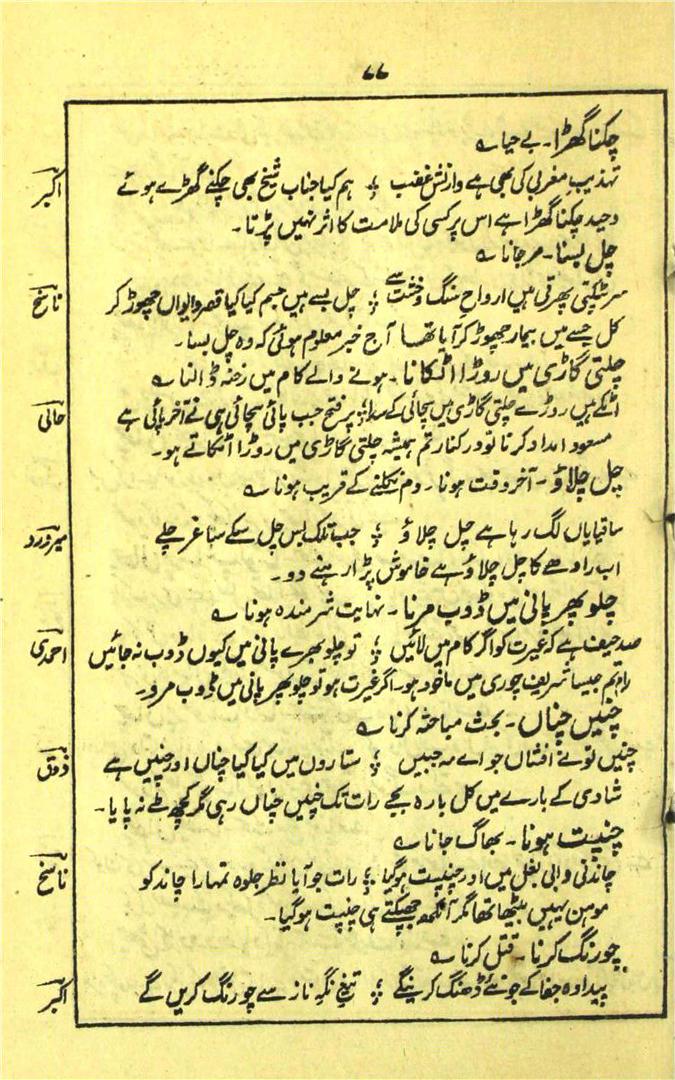 ۷۷
چکنا گھڑا۔ بے حیا ؎
تہذیبِ مغربی کی بھی ہے وارنش غضب ؛ ہم کیا جناب شیخ بھی چکنے گھڑے ہوئے اکبر
وحید چکنا گھڑا ہے اس پر کسی کی ملامت کا اثر نہیں پڑتا۔
چل بسنا۔ مرجانا ؎
سر ٹپکتی پھرتی ہیں ارواح سنگ و خشت سے ؛ چل بسے ہیں جسم کیا کیا قصر و ایواں چھوڑ کر ناسخ
کل جسے میں بیمار چھوڑ کر آیا تھا آج خبر معلوم ہوئی کہ وہ چل بسا۔
چلتی گاڑی میں روڑا اٹکانا۔ ہونے والے کام میں رخنہ ڈالنا ؎
اٹکے ہیں روڑے چلتی گاڑی میں سچائی کے سدا ؛ پر فتح جب پائی سچائی ہی نے آخر پائی ہے حالی
مسعود امداد کرنا تو درکنار تم ہمیشہ چلتی گاڑی میں روڑا اٹکاتے ہو۔
چل چلاؤ۔ آخر وقت ہونا۔ دم نکلنے کے قریب ہونا ؎
ساقیا یاں لگ رہا ہے چل چلاؤ ؛ جب تلک بس چل سکے ساغر چلے میر درد
اب رادھے کا چل چلاؤ ہے خاموش پڑا رہنے دو۔
چلو بھر پانی میں ڈوب مرنا۔ نہایت شرمندہ ہونا ؎
صد حیف ہے کہ غیرت کو اگر کام میں لائیں ؛ تو چلو بھرے پانی میں کیوں ڈوب نہ جائیں احمدی
رادہم جیسا شریف چوری میں ماخوذ ہو۔ اگر غیرت ہو تو چلو بھر پانی میں ڈوب مرو۔
چنیں چناں۔ بحث مباحثہ کرنا ؎
چنیں تو نے افشاں جو اے مہ جبیں ؛ ستاروں میں کیا کیا چناں اور چنیں ہے ذوق
شادی کے بارے میں کل بارہ بجے رات تک چنیں چناں رہی مگر کچھ طے نہ پایا۔
چنپت ہونا۔ بھاگ جانا ؎
چاندنی دابی بغل میں اور چنپت ہوگیا ؛ رات جو آیا نظر جلوہ تمہارا چاند کو ناسخ
موہن یہیں بیٹھا تھا مگر آنکھ جھپکتے ہی چنپت ہوگیا۔
چورنگ کرنا۔ قتل کرنا ؎
پیدا وہ جفا کے جو نئے ڈھنگ کرینگے ؛ تیغِ نگہِ ناز سے چورنگ کریں گے اکبر